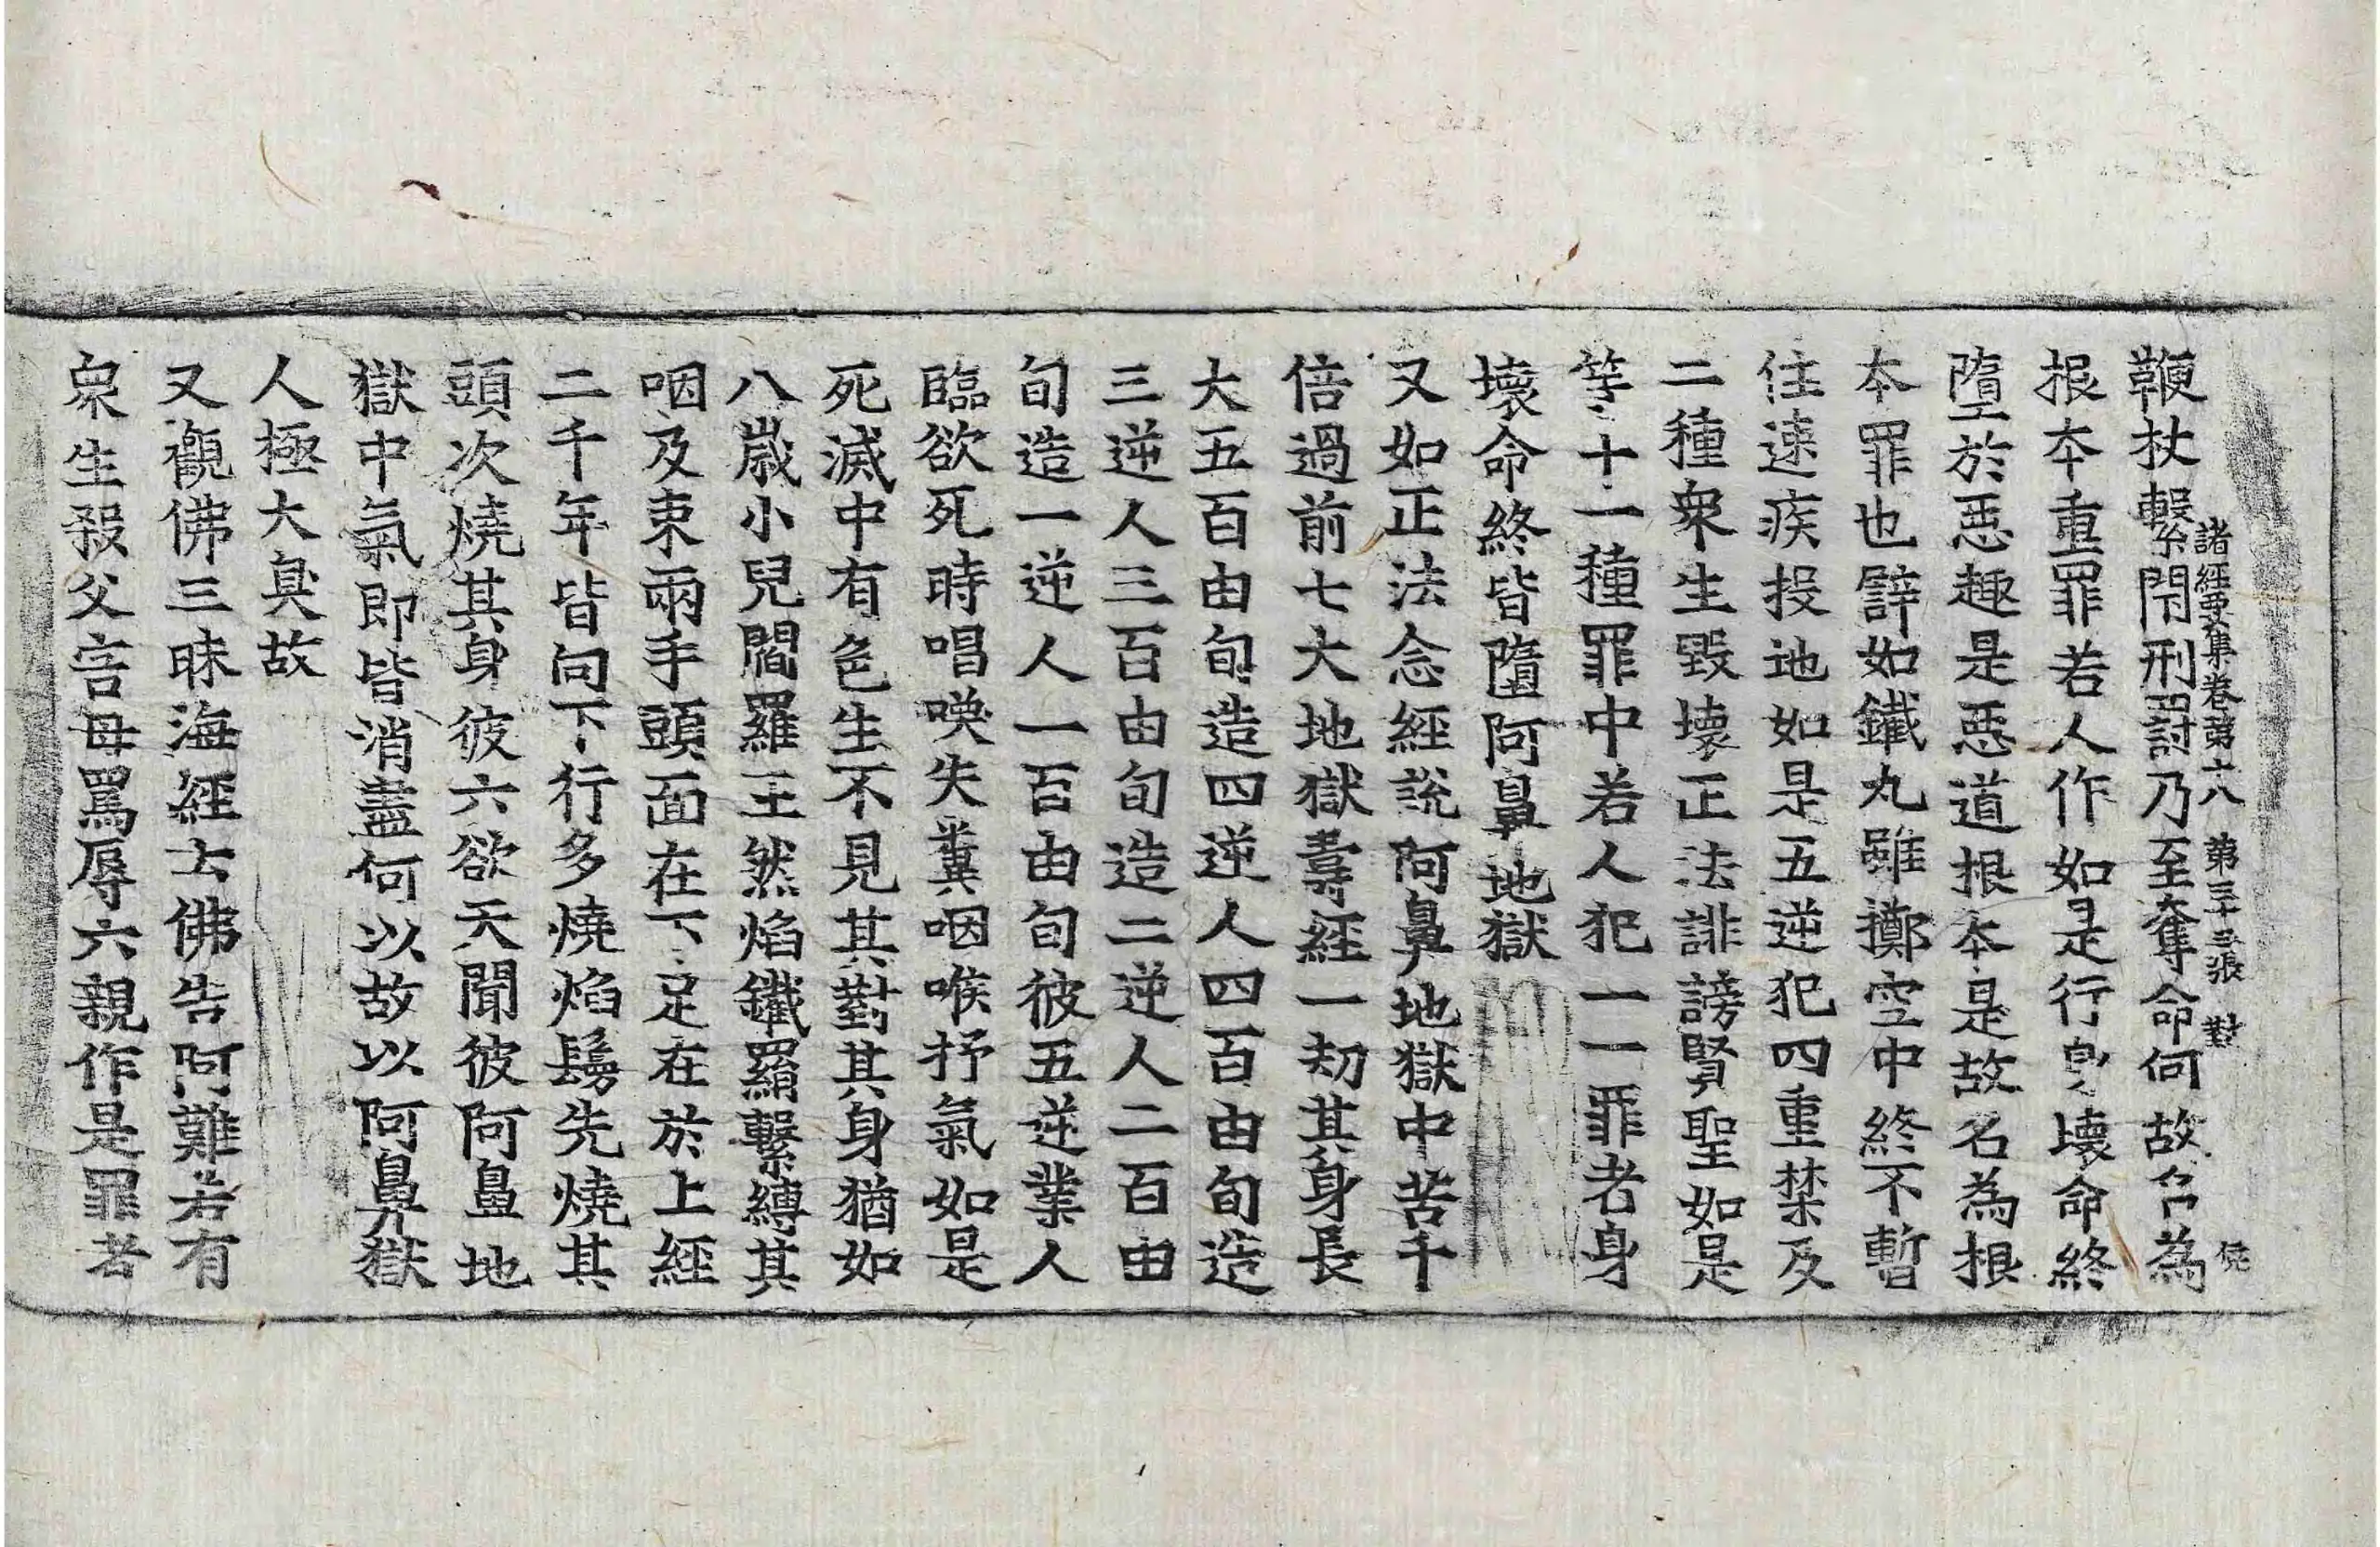 諸經要集卷第十八 第三十三張 對
鞭杖繫閇刑罸乃至奪命何故名為
根本重罪若人作如是行身壞命終
墮於惡趣是惡道根本是故名為根
本罪也譬如鐵丸雖擲空中終不暫
住速疾投地如是五逆犯四重禁及
二種衆生毀壞正法誹謗賢聖如是
等十一種罪中若人犯一一罪者身
壞命終皆墮阿鼻地獄
又如正法念經說阿鼻地獄中苦千
倍過前七大地獄壽經一刧其身長
大五百由旬造四逆人四百由旬造
三逆人三百由旬造二逆人二百由
旬造一逆人一百由旬彼五逆業人
臨欲死時唱喚失糞咽喉抒氣如是
死滅中有色生不見其對其身猶如
八歲小兒閻羅王然焰鐵羂繫縛其
咽及束兩手頭面在下足在於上經
二千年皆向下行多燒焰鬘先燒其
頭次燒其身彼六欲天聞彼阿鼻地
獄中氣即皆消盡何以故以阿鼻獄
人極大臭故
又觀佛三昧海經云佛告阿難若有
衆生殺父害母罵辱六親作是罪者